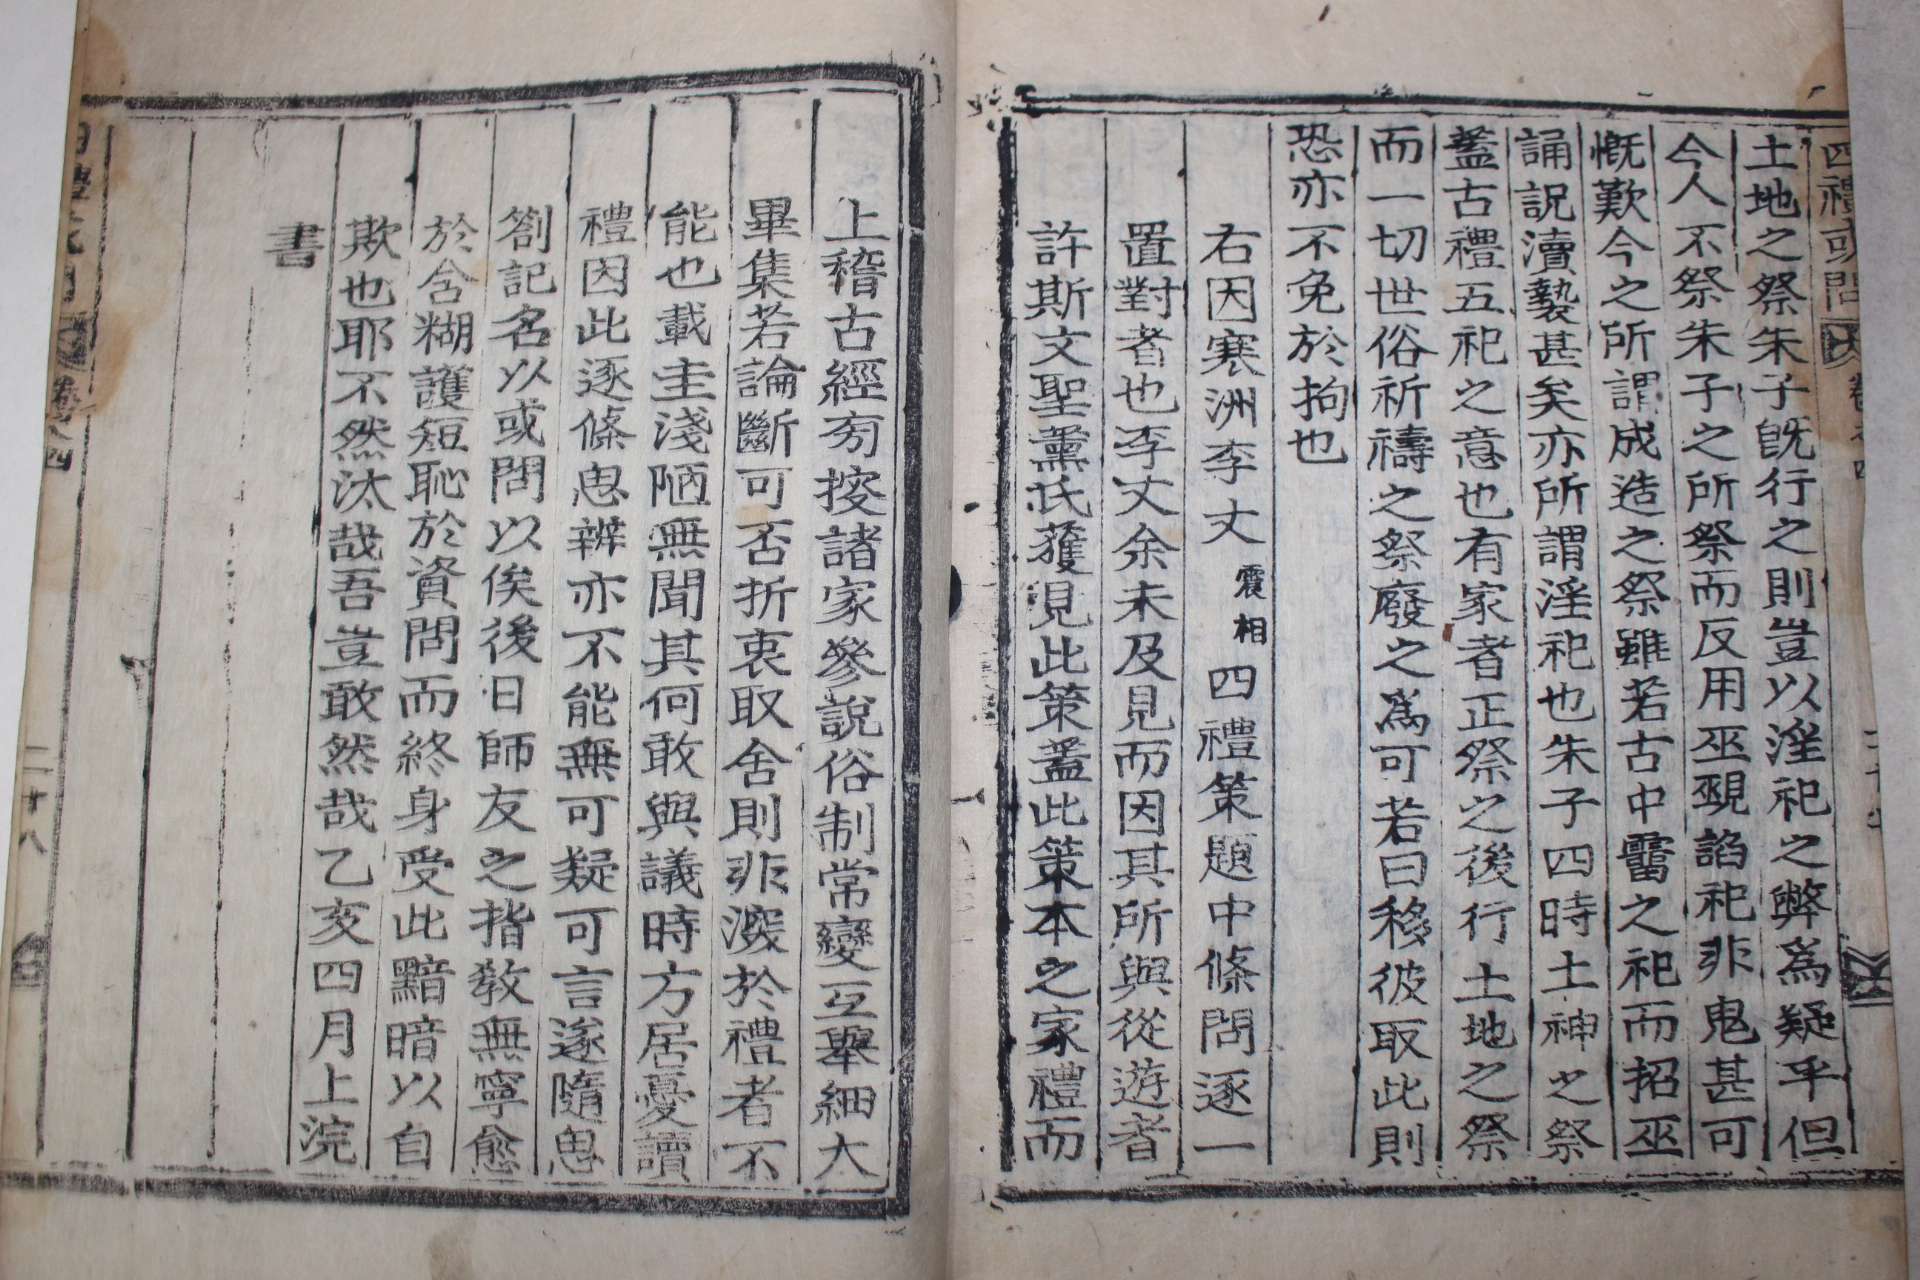 四禮或問 卷之四
土地之祭朱子旣行之則豈以淫祀之弊爲疑乎但
今人不祭朱子之所祭而反用巫覡諂祀非鬼甚可
慨歎今之所謂成造之祭雖若古中霤之祀而招巫
誦說瀆褻甚矣亦所謂淫祀也朱子四時土神之祭
蓋古禮五祀之意也有家者正祭之後行土地之祭
而一切世俗祈禱之祭廢之爲可若曰移彼取此則
恐亦不免於拘也
右因寒洲李丈震相四禮策題中條問逐一
置對者也李丈余未及見而因其所與從遊者
許斯文聖薰氏獲見此策蓋此策本之家禮而
上稽古經旁按諸家參說俗制常變互擧細大
畢集若論斷可否折衷取舍則非深於禮者不
能也載圭淺陋無聞其何敢與議時方居憂讀
禮因此逐條思辨亦不能無可疑可言遂隨思
箚記名以或問以俟後日師友之指敎無寧愈
於含糊護短恥於資問而終身受此黯暗以自
欺也耶不然汰哉吾豈敢然哉乙亥四月上浣
書
卷之四
二十八